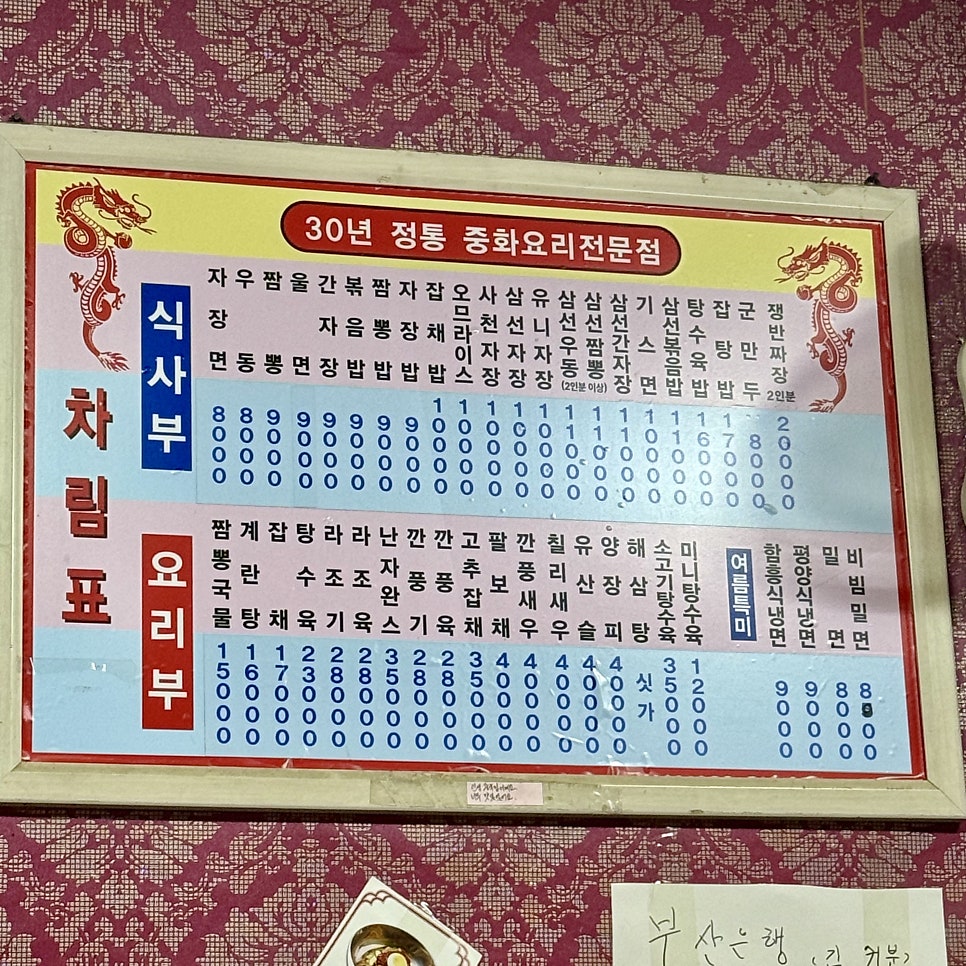 30년 정통 중화요리전문점
차림표
식사부
자장면 8000
우동 8000
짬뽕 9000
울면 9000
간자장 9000
볶음밥 9000
짬뽕밥 9000
자장밥 9000
잡채밥 10000
오므라이스 10000
사천자장 10000
삼선자장 10000
유니자장 10000
삼선우동 11000
삼선짬뽕 11000
(2인분 이상)
삼선간자장 11000
기스면 10000
삼선볶음밥 11000
탕수육밥 16000
잡탕밥 17000
군만두 8000
쟁반짜장 2인분 20000
요리부
짬뽕국물 15000
계란탕 16000
잡채 17000
탕수육 23000
라조기 28000
라조육 28000
난자완스 35000
깐풍기 28000
깐풍육 28000
고추잡채 35000
팔보채 40000
깐풍새우 40000
칠리새우 40000
유산슬 40000
양장피 40000
해삼탕 싯가
소고기탕수육 35000
미니탕수육 12000
여름특미
함흥식냉면 9000
평양식냉면 9000
밀면 8000
비빔밀면 8000
부산은행